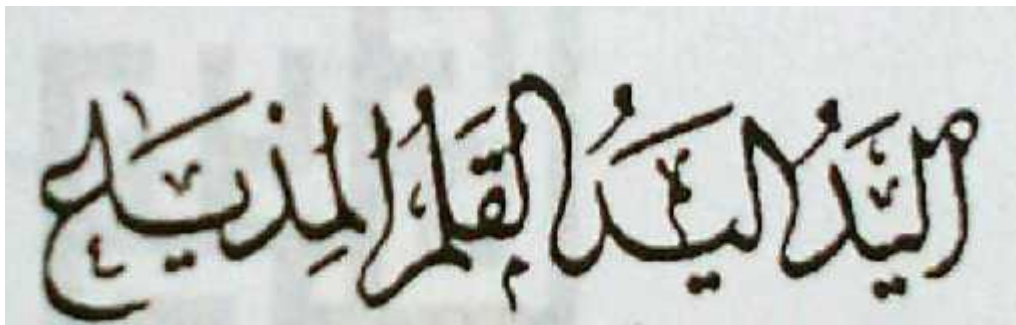 اليَدُ اليَدُ القَلَمُ المِذيَاع